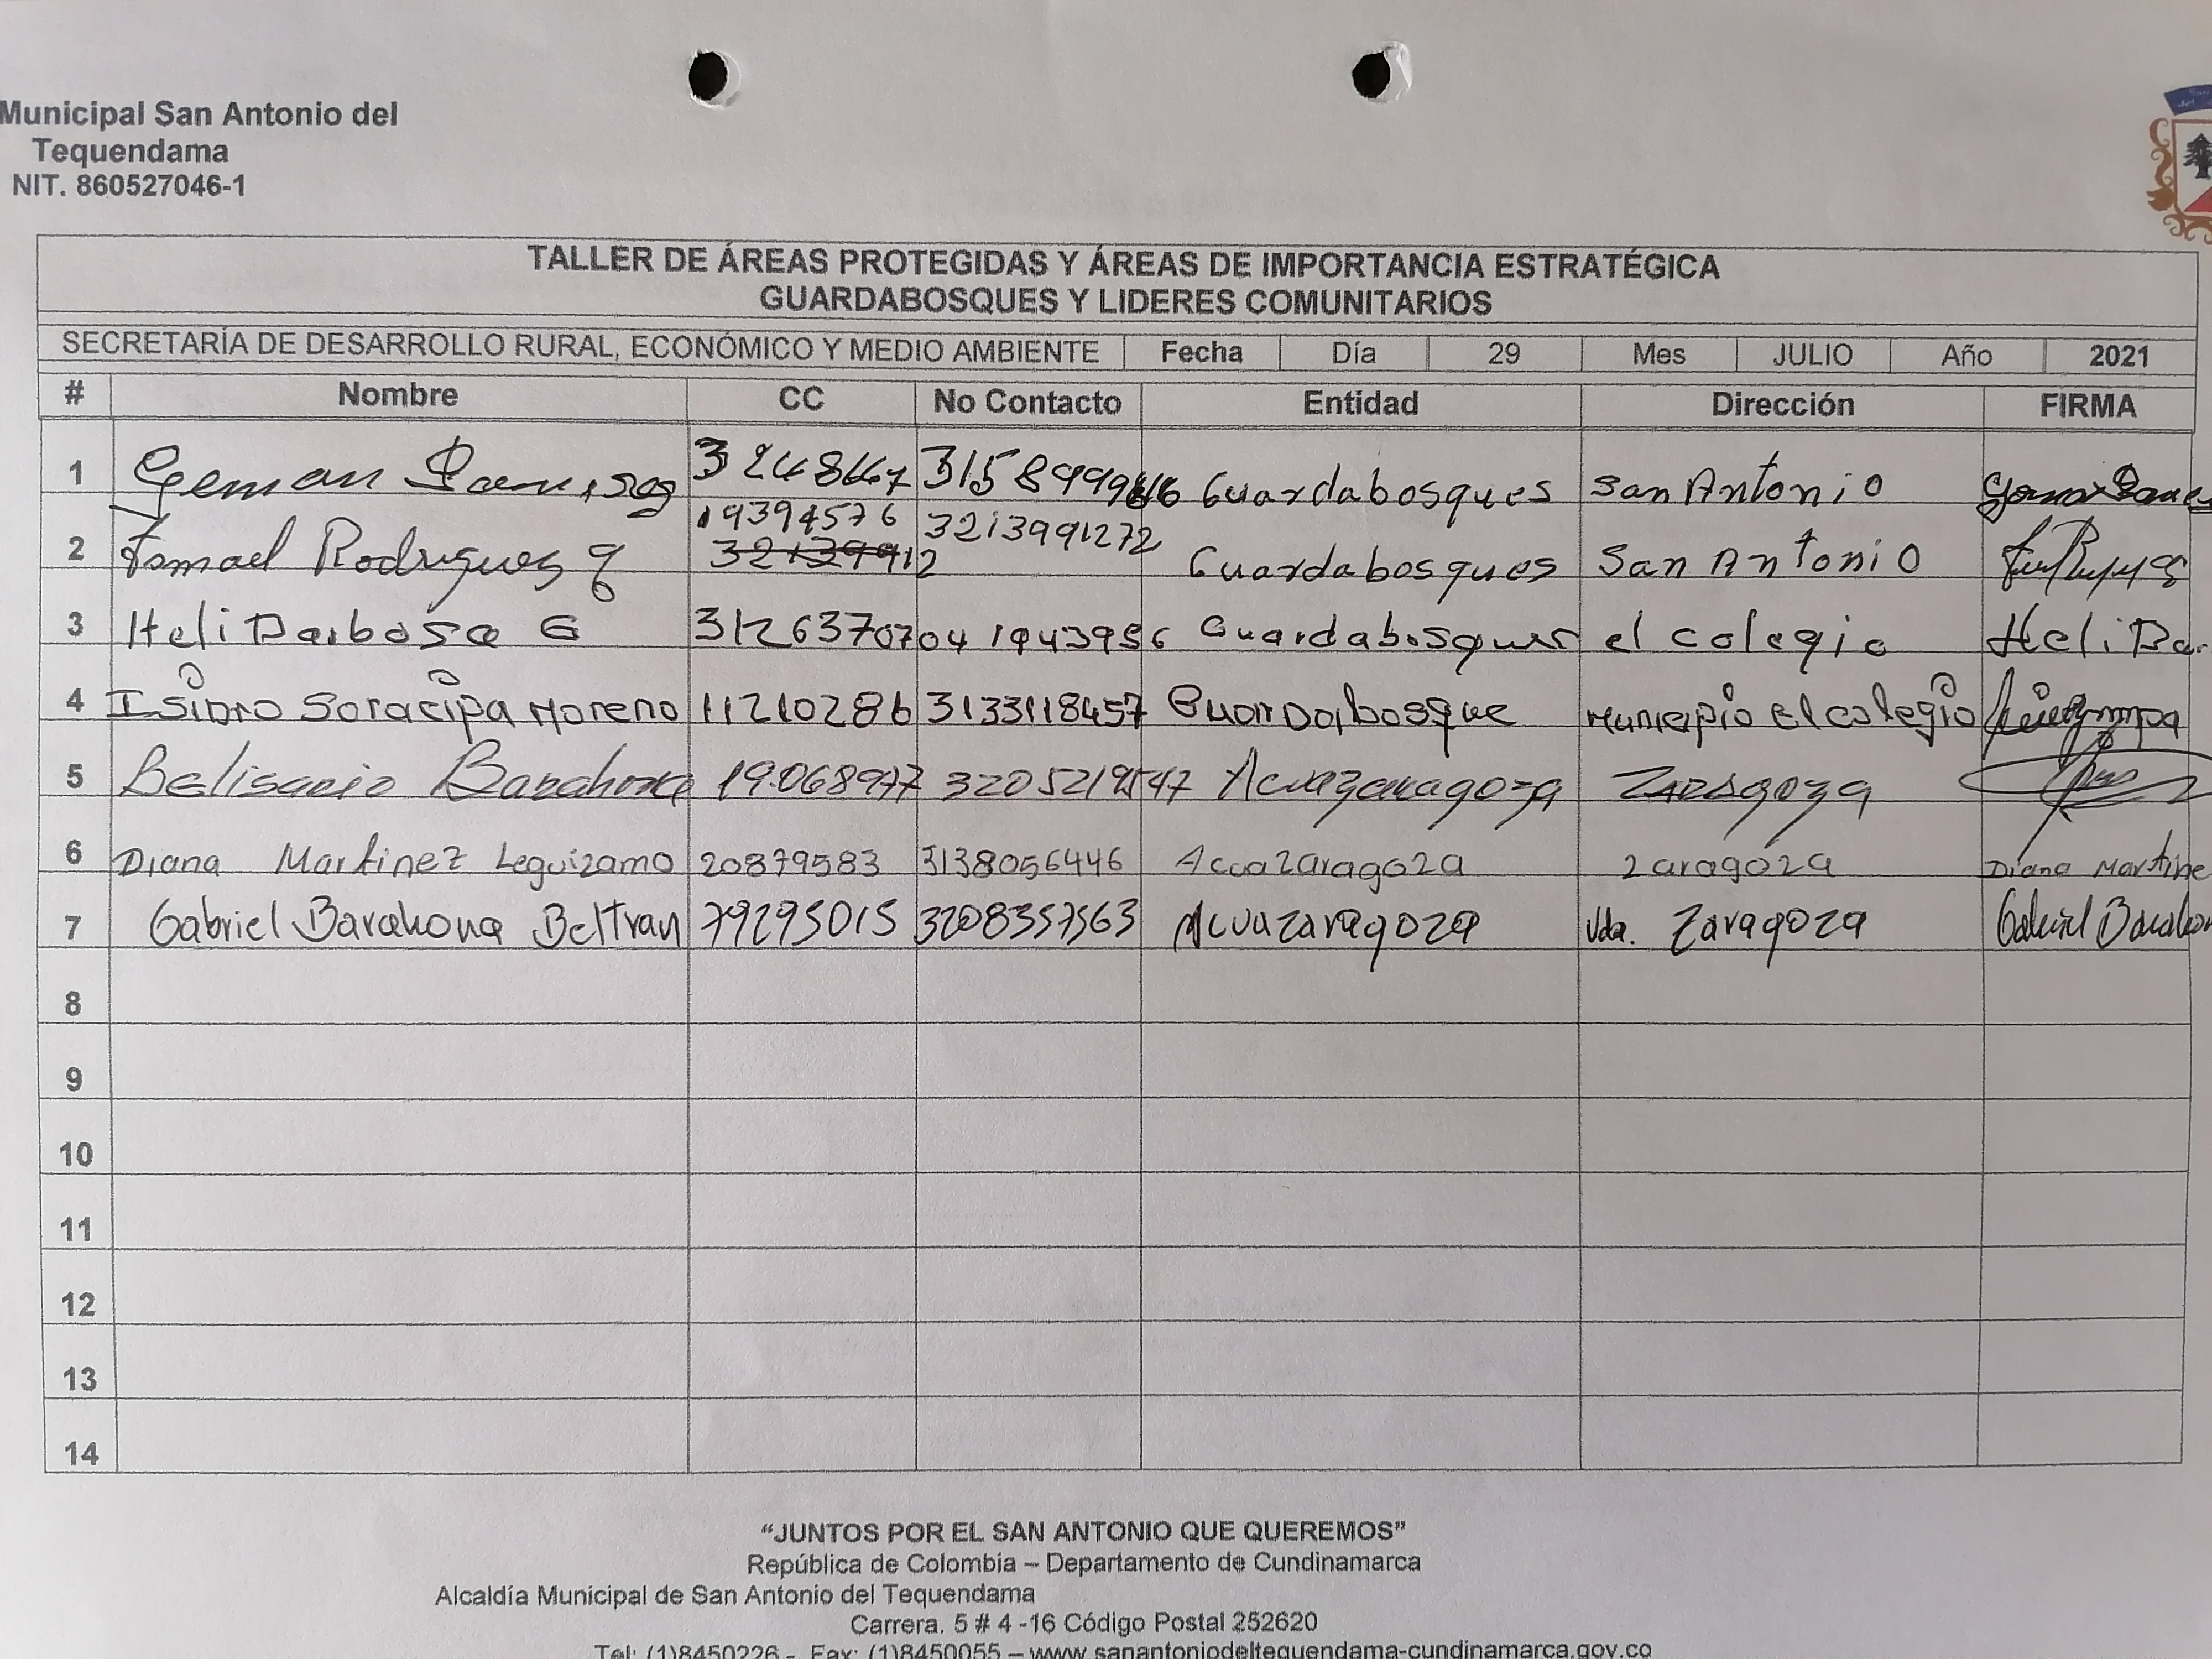 Municipal San Antonio del
Tequendama
NIT. 860527046-1
TALLER DE ÁREAS PROTEGIDAS Y ÁREAS DE IMPORTANCIA ESTRATÉGICA
GUARDABOSQUES Y LIDERES COMUNITARIOS
SECRETARÍA DE DESARROLLO RURAL, ECONÓMICO Y MEDIO AMBIENTE Fecha Día 29 Mes JULIO Año 2021
# Nombre CC No Contacto Entidad Dirección FIRMA
1 German Guardabosques San Antonio
19394576 3213991272
2 Ismael Rodrigues Guardabosques San Antonio
3 Heli Barbosa G Guardabosques el colegio Heli Ba.
4 Isidro Soracipa Moreno 11210286 3133118457 Guardabosque Municipio el colegio
5 Belisario Barahona 19.068977 Acuazaragoza Zaragoza
6 Diana Martinez Leguizamo 20879583 3138056446 Acuazaragoza Zaragoza Diana Martine
7 Gabriel Barahona Beltran 79295015 3208357563 Acuazaragoza Vda. Zaragoza Gabriel Barahon
8
9
10
11
12
13
14
“JUNTOS POR EL SAN ANTONIO QUE QUEREMOS”
República de Colombia – Departamento de Cundinamarca
Alcaldía Municipal de San Antonio del Tequendama
Carrera. 5 # 4 -16 Código Postal 252620
Tel: (1)8450226 - Fax: (1)8450055 – www.sanantoniodeltequendama-cundinamarca.gov.co